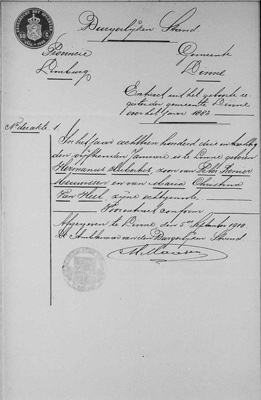 Burgerlijken Stand
Provincie Gemeente
Limburg Bemme
Extract uit het geboorte re
gister der gemeente
voor het jaar 1883
No der akte 1
In het jaar achttien honderd drie en tachtig
den vijftienden Januari is te geboren
Hermanus Hubertus, zoon van
en van Maria Christina
Van Heel, zijne echtgenoote
Voor extract conform
Afgegeven te den 5en September 1910.
De Ambtenaar van den Burgerlijken Stand